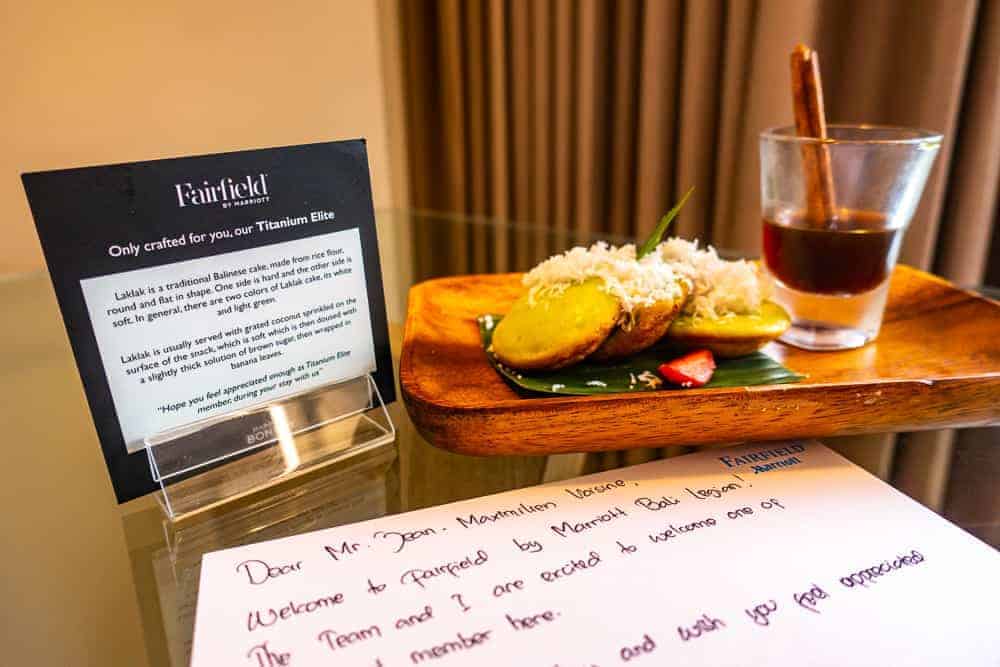 Fairfield
BY MARRIOTT
Only crafted for you, our Titanium Elite
Laklak is a traditional Balinese cake, made from rice flour,
round and flat in shape. One side is hard and the other side is
soft. In general, there are two colors of Laklak cake, its white
and light green.
Laklak is usually served with grated coconut sprinkled on the
surface of the snack, which is soft which is then doused with
a slightly thick solution of brown sugar, then wrapped in
banana leaves.
"Hope you feel appreciated enough as Titanium Elite
member, during your stay with us"
FAIRFIELD
Marriott
Dear Mr. Jean-Maximilien Voisine,
Welcome to Fairfield by Marriott Bali Legian!
The Team and I are excited to welcome one of
member here.
and wish you feel appreciated